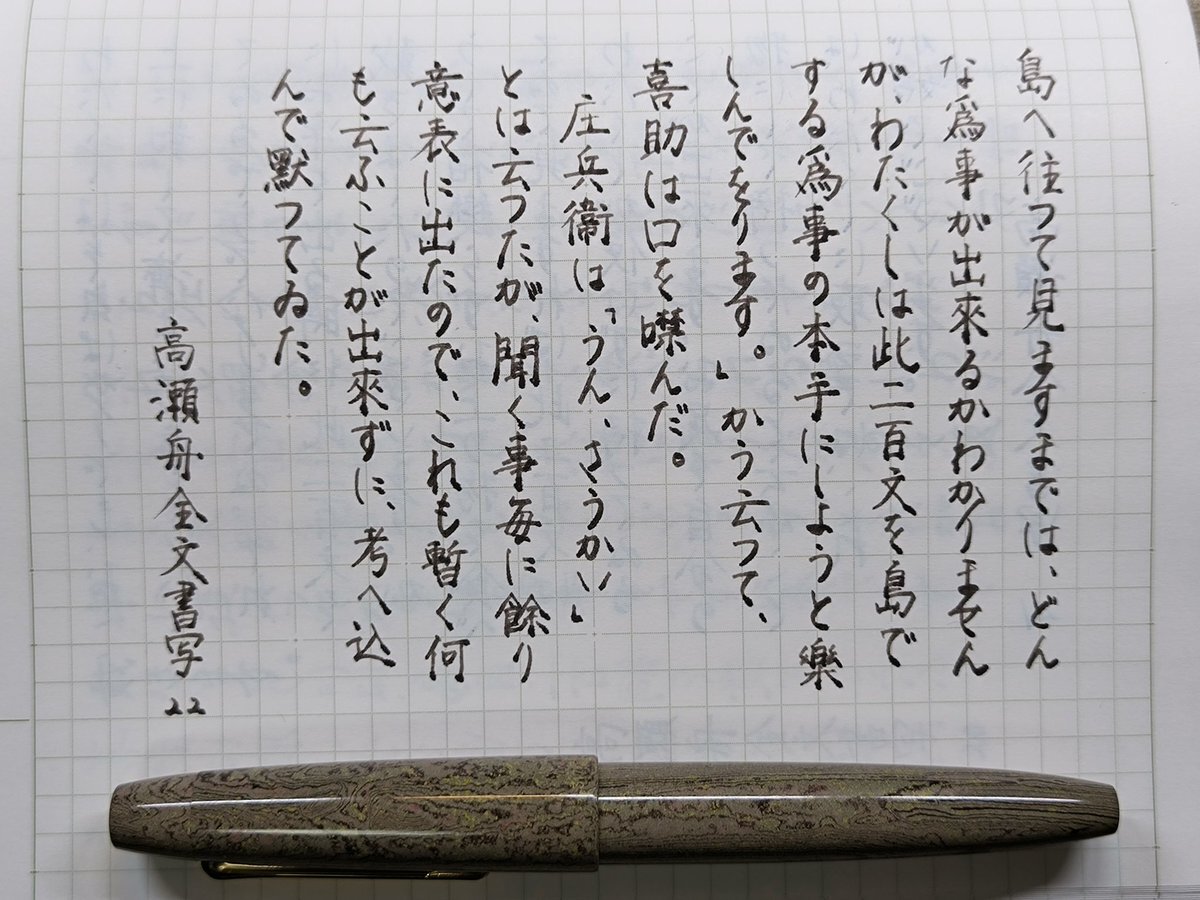 島へ往つて見ますまでは、どん
な爲事が出來るかわかりません
が、わたくしは此二百文を島で
する爲事の本手にしようと樂
しんでをります。」かう云つて、
喜助は口を噤んだ。
庄兵衞は「うん、さうかい」
とは云つたが、聞く事毎に餘り
意表に出たので、これも暫く何
も云ふことが出來ずに、考へ込
んで默つてゐた。
高瀨舟全文書写22